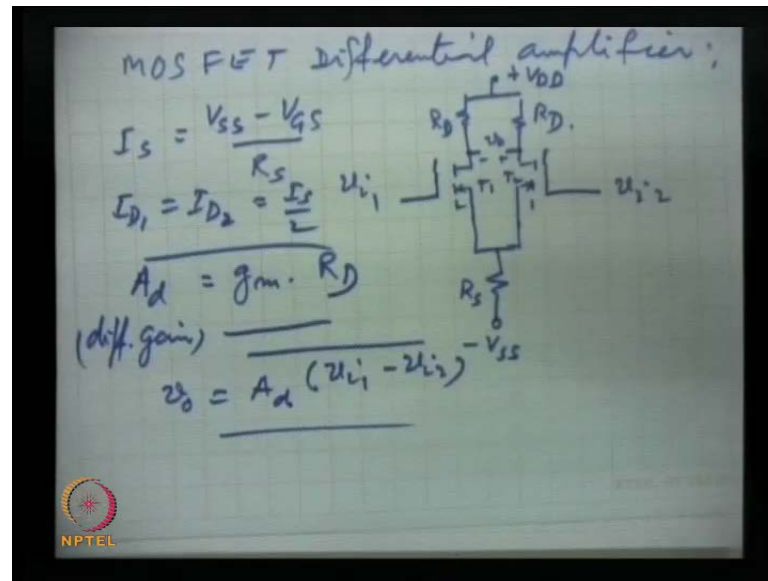 MOSFET Differential amplifier:
I_S = (V_SS - V_GS) / R_S
I_D1 = I_D2 = I_S / 2
A_d = g_m . R_D
(diff. gain)
v_o = A_d (v_i1 - v_i2)
+ V_DD
R_D
R_D.
v_o
- +
T_1
T_2
v_i1
v_i2
R_S
- V_SS
NPTEL